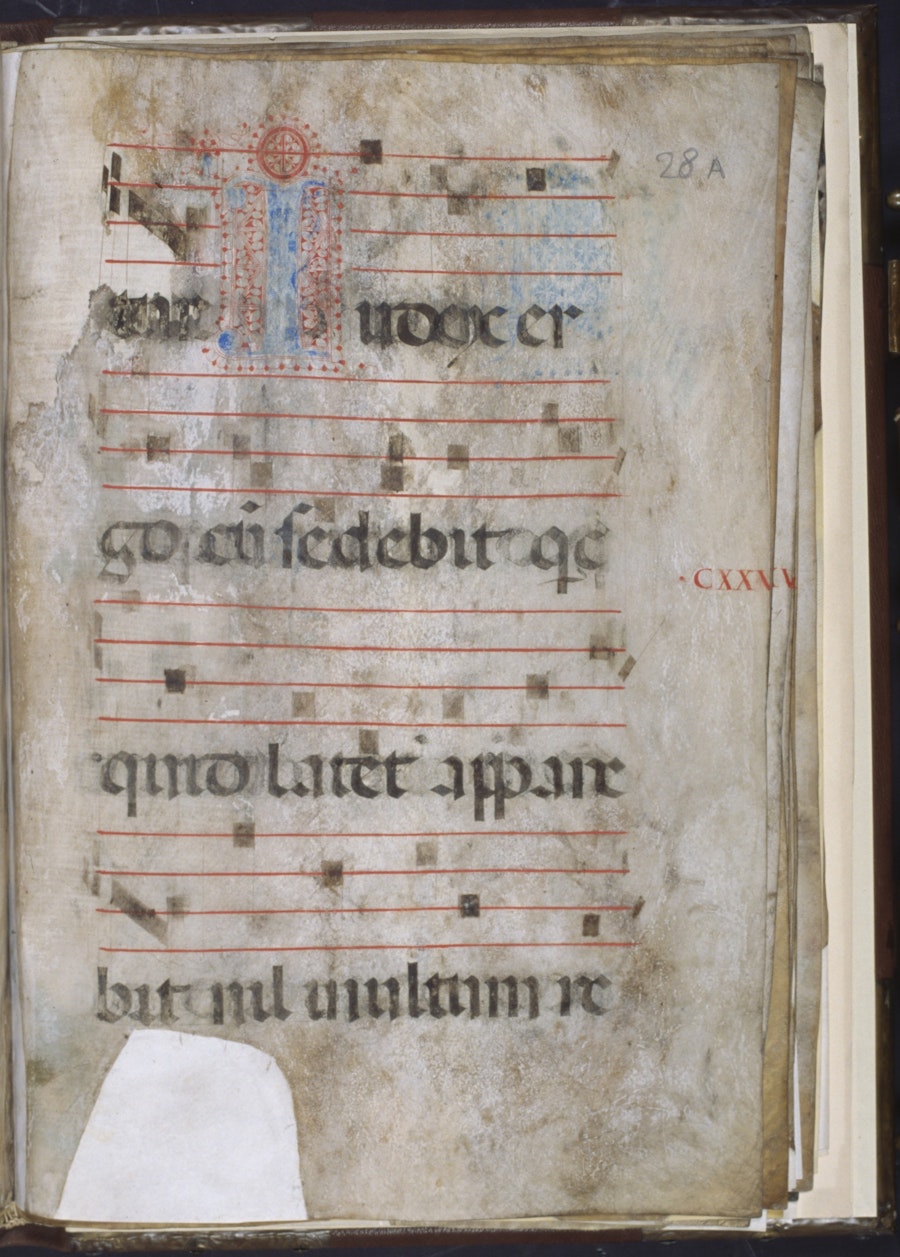 28 A
tur Iudex er
go cū sedebit qc
quid latet appare
bit nil inultum re